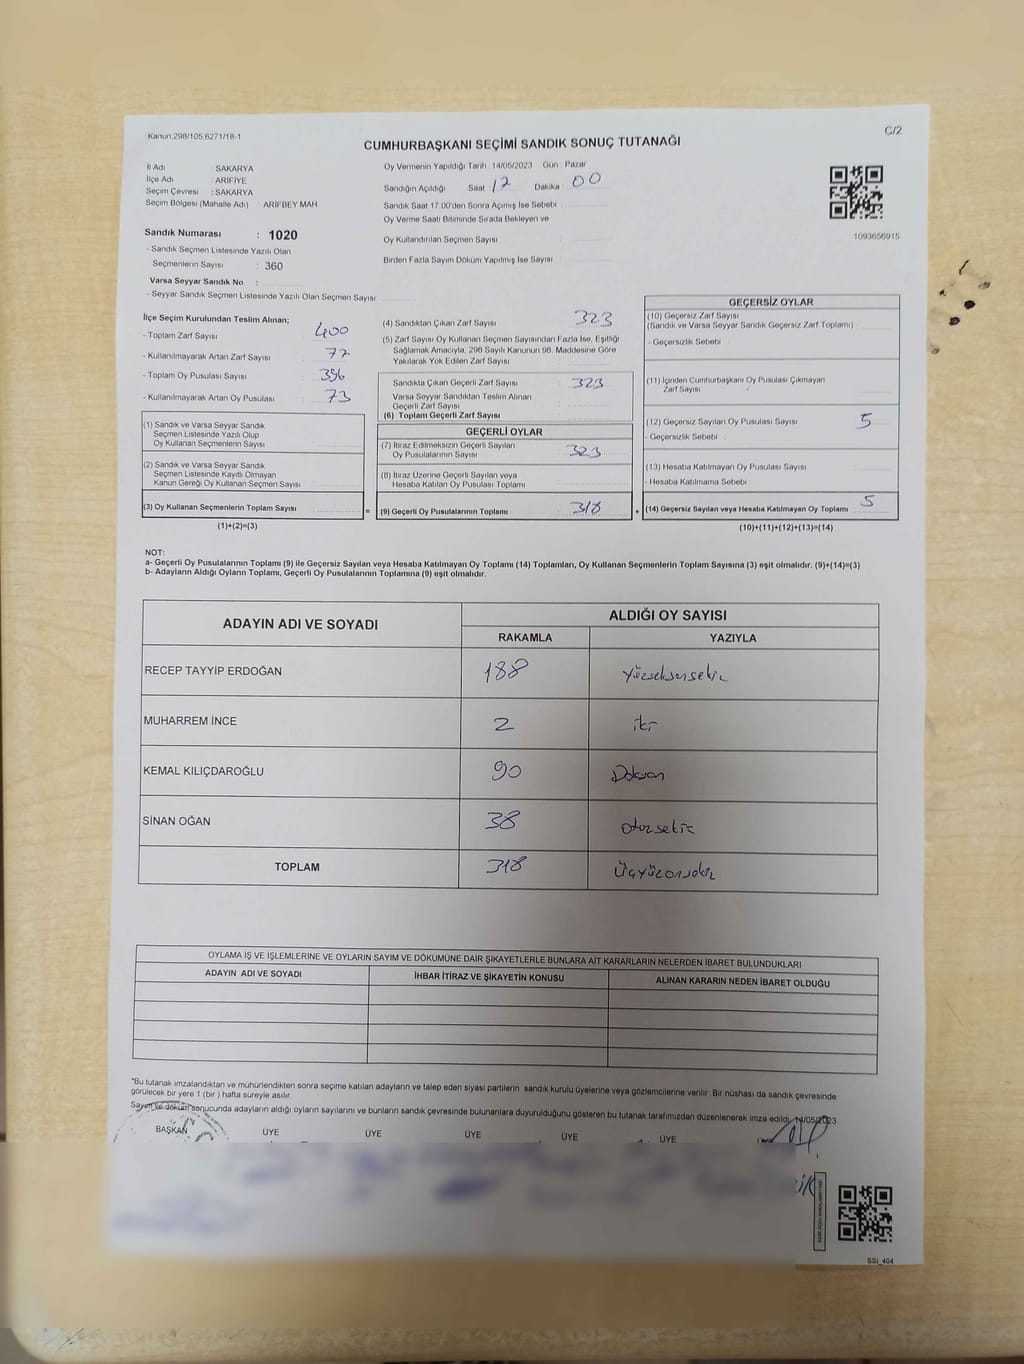 Kanun 298/105,6271/18-1
C/2
CUMHURBAŞKANI SEÇİMİ SANDIK SONUÇ TUTANAĞI
İl Adı SAKARYA
İlçe Adı ARİFİYE
Seçim Çevresi : SAKARYA
Seçim Bölgesi (Mahalle Adı) : ARİFBEY MAH
Sandık Numarası : 1020
- Sandık Seçmen Listesinde Yazılı Olan
Seçmenlerin Sayısı : 360
Varsa Seyyar Sandık No :
- Seyyar Sandık Listesinde Yazılı Olan Seçmen Sayısı
Oy Vermenin Yapıldığı Tarih 14/05/2023 Gün : Pazar
Sandığın Açıldığı Saat 17 Dakika 00
Sandık Saat 17.00'den Sonra Açımış İse Sebebi
Oy Verme Saati Bitiminde Sırada Bekleyen ve
Oy Kullandırılan Seçmen Sayısı
Birden Fazla Sayım Döküm Yapılmış İse Sayısı
1093656915
İlçe Seçim Kurulundan Teslim Alınan;
- Toplam Zarf Sayısı 400
- Kullanılmayarak Artan Zarf Sayısı 77
- Toplam Oy Pusulası Sayısı 396
- Kullanılmayarak Artan Oy Pusulası 73
(1) Sandık ve Varsa Seyyar Sandık
Seçmen Listesinde Yazılı Olup
Oy Kullanan Seçmenlerin Sayısı
(2) Sandık ve Varsa Seyyar Sandık
Seçmen Listesinde Kayıtlı Olmayan
Kanun Gereği Oy Kullanan Seçmen Sayısı
(3) Oy Kullanan Seçmenlerin Toplam Sayısı
(1)+(2)=(3)
(4) Sandıktan Çıkan Zarf Sayısı 323
(5) Zarf Sayısı Oy Kullanan Seçmen Sayısından Fazla İse, Eşitliği
Sağlamak Amacıyla, 298 Sayılı Kanunun 98. Maddesine Göre
Yakılarak Yok Edilen Zarf Sayısı
Sandıkta Çıkan Geçerli Zarf Sayısı 323
Varsa Seyyar Sandıktan Teslim Alınan
Geçerli Zarf Sayısı
(6) Toplam Geçerli Zarf Sayısı
GEÇERLİ OYLAR
(7) İtiraz Edilmeksizin Geçerli Sayılan
Oy Pusulalarının Sayısı 323
(8) İtiraz Üzerine Geçerli Sayılan veya
Hesaba Katılan Oy Pusulası Toplamı
= (9) Geçerli Oy Pusulalarının Toplamı 318
GEÇERSİZ OYLAR
(10) Geçersiz Zarf Sayısı
(Sandık ve Varsa Seyyar Sandık Geçersiz Zarf Toplamı)
- Geçersizlik Sebebi
(11) İçinden Cumhurbaşkanı Oy Pusulası Çıkmayan
Zarf Sayısı
(12) Geçersiz Sayılan Oy Pusulası Sayısı 5
- Geçersizlik Sebebi
(13) Hesaba Katılmayan Oy Pusulası Sayısı
- Hesaba Katılmama Sebebi
+ (14) Geçersiz Sayılan veya Hesaba Katılmayan Oy Toplamı 5
(10)+(11)+(12)+(13)=(14)
NOT:
a- Geçerli Oy Pusulalarının Toplamı (9) ile Geçersiz Sayılan veya Hesaba Katılmayan Oy Toplamı (14) Toplamları, Oy Kullanan Seçmenlerin Toplam Sayısına (3) eşit olmalıdır. (9)+(14)=(3)
b- Adayların Aldığı Oyların Toplamı, Geçerli Oy Pusulalarının Toplamına (9) eşit olmalıdır.
ADAYIN ADI VE SOYADI
ALDIĞI OY SAYISI
RAKAMLA YAZIYLA
RECEP TAYYİP ERDOĞAN 188 Yüzseksensekiz
MUHARREM İNCE 2 iki
KEMAL KILIÇDAROĞLU 90 Doksan
SİNAN OĞAN 38 otuzsekiz
TOPLAM 318 Üçyüzonsekiz
OYLAMA İŞ VE İŞLEMLERİNE VE OYLARIN SAYIM VE DÖKÜMÜNE DAİR ŞİKAYETLERLE BUNLARA AİT KARARLARIN NELERDEN İBARET BULUNDUKLARI
ADAYIN ADI VE SOYADI İHBAR İTİRAZ VE ŞİKAYETİN KONUSU ALINAN KARARIN NEDEN İBARET OLDUĞU
*Bu tutanak imzalandıktan ve mühürlendikten sonra seçime katılan adayların ve talep eden siyasi partilerin sandık kurulu üyelerine veya gözlemcilerine verilir. Bir nüshası da sandık çevresinde
görülecek bir yere 1 (bir ) hafta süreyle asılır.
Sayım ve döküm sonucunda adayların aldığı oyların sayılarını ve bunların sandık çevresinde bulunanlara duyurulduğunu gösteren bu tutanak tarafımızdan düzenlenerek imza edildi. 14/05/2023
BAŞKAN ÜYE ÜYE ÜYE ÜYE ÜYE
SSI_404